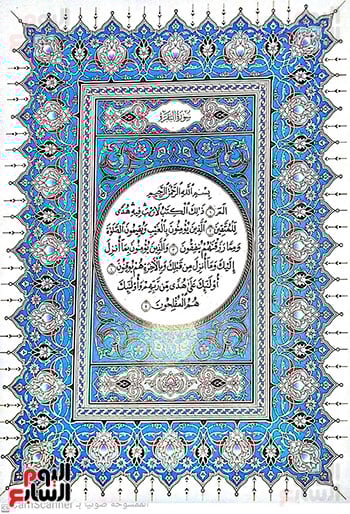 سُورَةُ البَقَرَةِ
بِسْمِ اللَّهِ الرَّحْمَٰنِ الرَّحِيمِ
الٓمٓ ١ ذَٰلِكَ الْكِتَٰبُ لَا رَيْبَ فِيهِ هُدًى
لِّلْمُتَّقِينَ ٢ الَّذِينَ يُؤْمِنُونَ بِالْغَيْبِ وَيُقِيمُونَ الصَّلَوٰةَ
وَمِمَّا رَزَقْنَٰهُمْ يُنفِقُونَ ٣ وَالَّذِينَ يُؤْمِنُونَ بِمَا أُنزِلَ
إِلَيْكَ وَمَا أُنزِلَ مِن قَبْلِكَ وَبِالْآخِرَةِ هُمْ يُوقِنُونَ ٤
أُولَٰئِكَ عَلَىٰ هُدًى مِّن رَّبِّهِمْ وَأُولَٰئِكَ
هُمُ الْمُفْلِحُونَ ٥
اليوم
السابع
الممسوحة ضوئيا بـ CamScanner